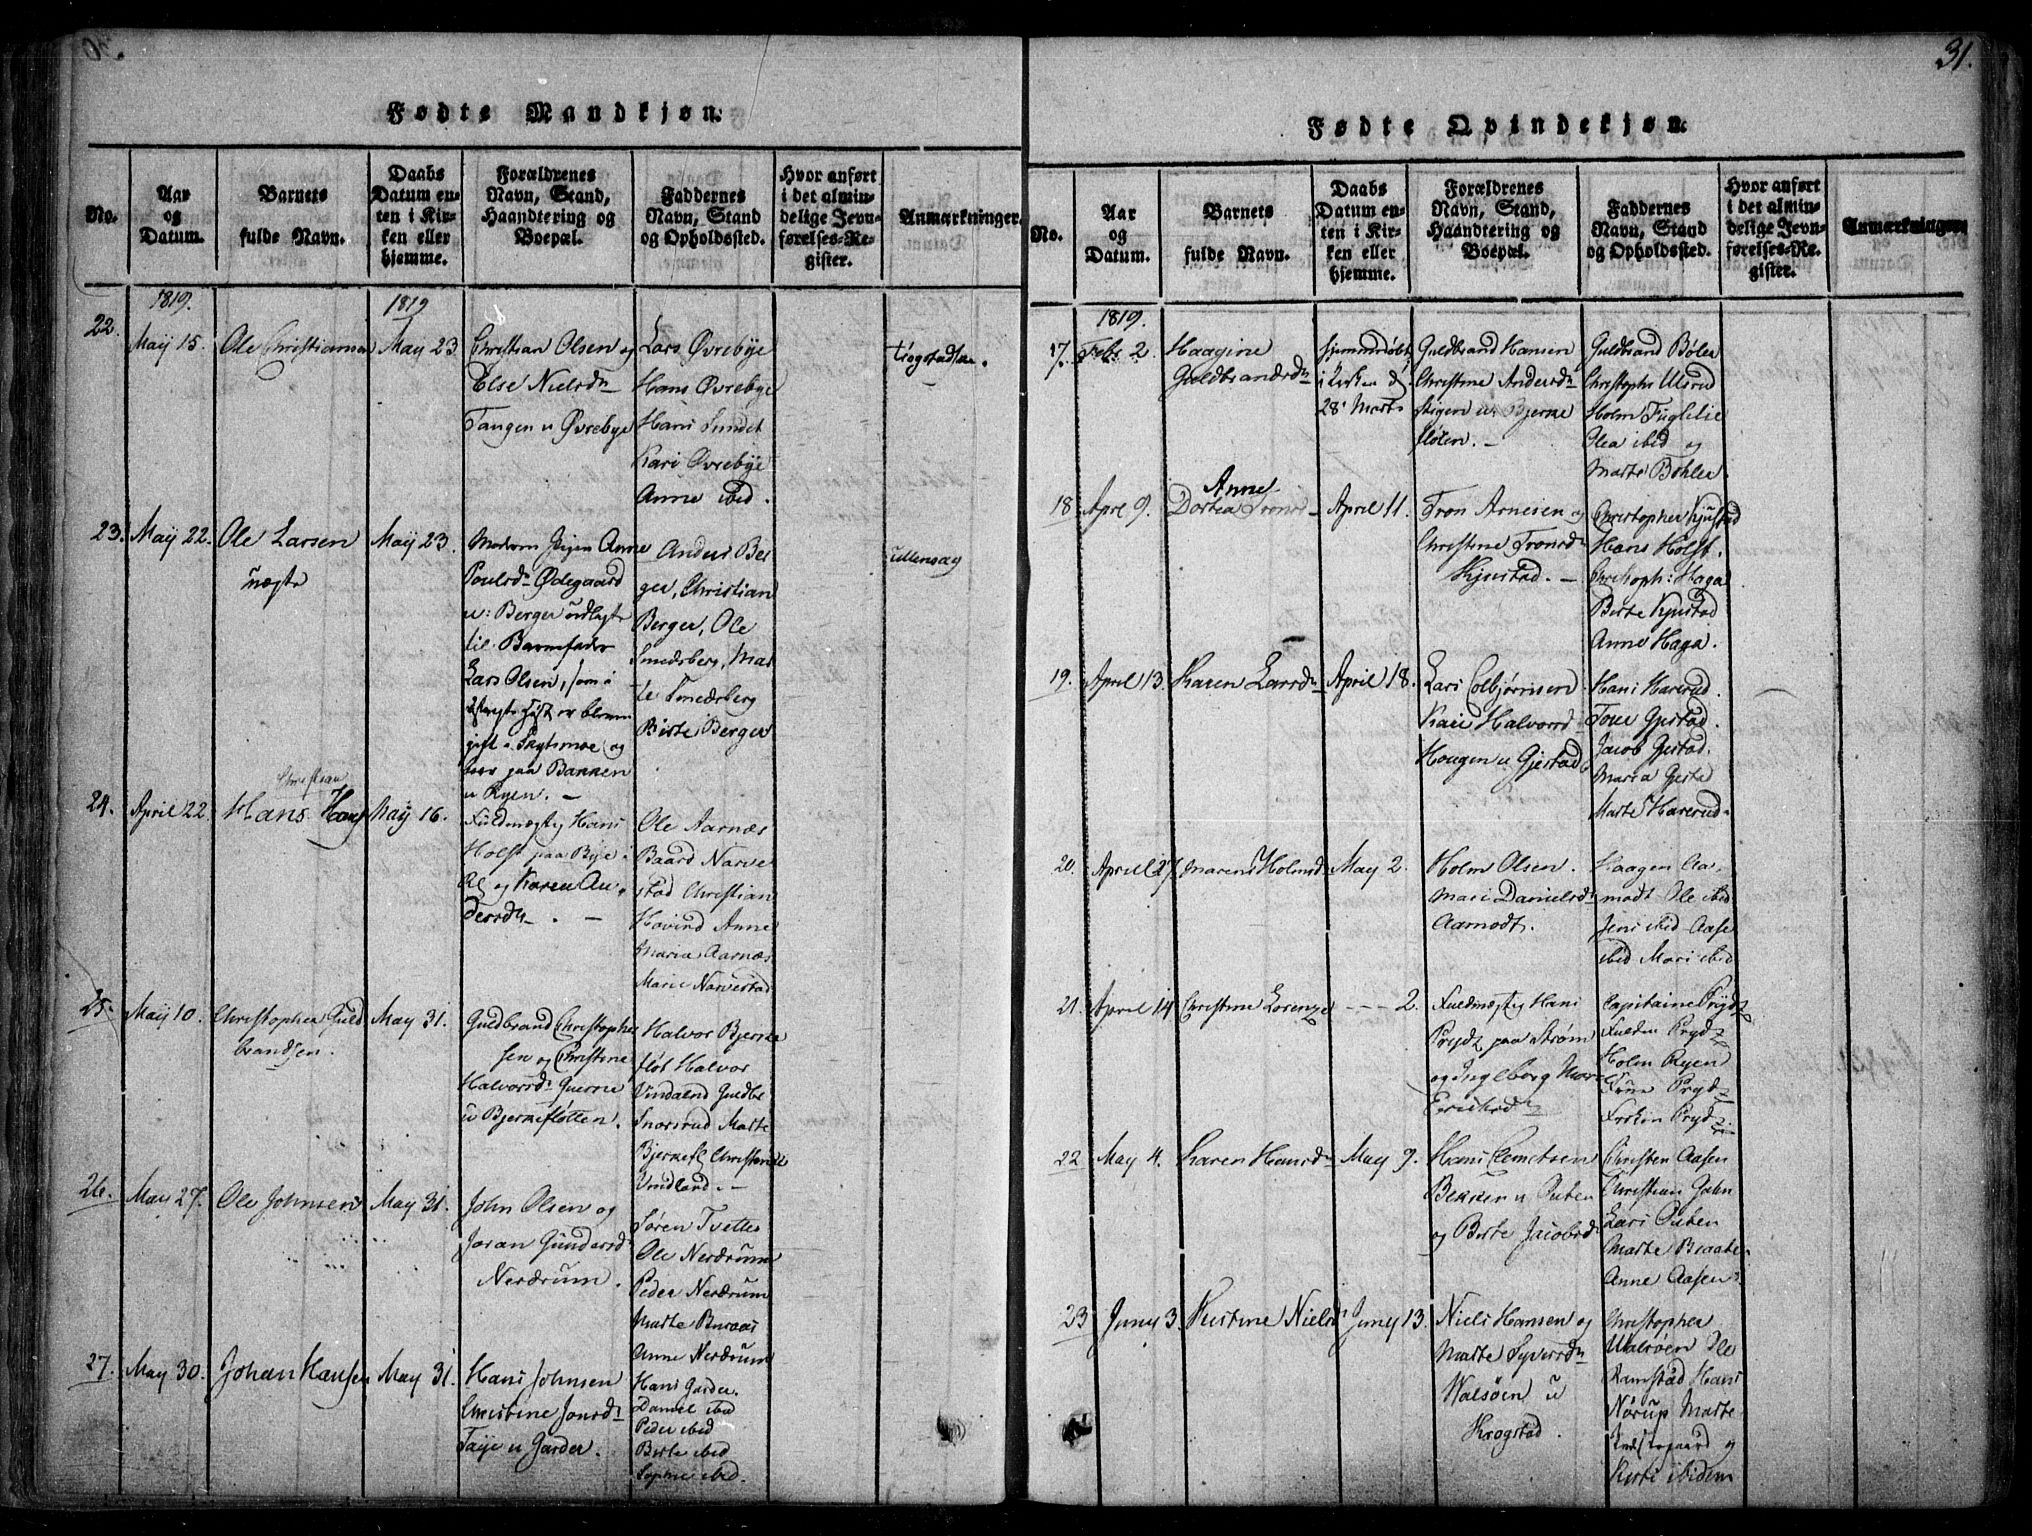 31.
Fødte Mandkjøn.
No.
Aar og Datum.
Barnets fulde Navn.
Daabs Datum enten i Kirken eller hjemme.
Forældrenes Navn, Stand, Haandtering og Boepæl.
Faddernes Navn, Stand og Opholdssted.
Hvor anført i det almindelige Jevnførelses-Register.
Anmærkninger.
1819.
1819
22.
May 15.
Ole Christiansen
May 23.
Christian Olsen og
Else Nielsdr
Tangen u Øvrebye
Lars Øvrebye
Hans Øvrebye
Hans Sundet
Kari Øvrebye
Anne ibid.
Trøgstad
23.
May 22.
Ole Larsen
uægte
May 23.
Anne
Poulsdr Ødegaard
u: Berger udlagte
til Barnefader
Lars Olsen, som i
gift
boer paa Bakken
u Ryen.
Anders Ber
ger, Christian
Berger, Ole
Smedsberg, Mar
te Smedsberg
Birte Berger
24.
April 22.
Christian
Hans Hans
May 16.
Fuldmægtig Hans
Holst paa Bye i
og Karen An
dersdr
Ole Aarnæs
Baard Narve
stad Christian
Hovind Anne
Maria Aarnæs
Marie Narvestad
25.
May 10.
Christopher Guld
brandsen.
May 31.
Guldbrand Christopher
sen og Christine
Halvorsdr
u Bjerkefløtten.
Halvor Bjerke
fløt Halvor
Guldbr
Marte
Bjerkefl Christen
Vindland.
26.
May 27.
Ole Johnsen
May 31.
John Olsen og
Joran Gundersdr
Nerdrum.
Søren Tvetter
Ole Nerdrum
Peder Nerdrum
Marte Buraas
Anne Nerdrum
27.
May 30.
Johan Hansen
May 31.
Hans Johnsen
Christine Jonsdr
Taje u Garder.
Hans Garder.
Daniel ibid
Peder ibid
Birte ibid
Sophie ibid.
Fødte Qvindekjøn.
No.
Aar og Datum.
Barnets fulde Navn.
Daabs Datum enten i Kirken eller hjemme.
Forældrenes Navn, Stand, Haandtering og Boepæl.
Faddernes Navn, Stand og Opholdssted.
Hvor anført i det almindelige Jevnførelses-Register.
Anmærkninger.
1819.
17.
Febr 2.
Haagine
Guldbrandsdr
hjemmedøbt
i Kirken d
28 Marts
Guldbrand Hansen
Christine Andersdr
Stigen u. Bjerke
fløten.
Guldbrand Bøler
Christopher Ulsrud
Holm Fuglelie
Olea ibid og
Marte Bøhler
18
Apr 9.
Anne
Dortea Tronsd
April 11.
Tron Arnesen og
Christine Tronsdr
Kjustad.
Christopher Kjustad
Hans Holst.
Christoph: Haga
Birte Kjustad
Anne Haga.
19.
April 13.
Karen Larsdr
April 18.
Lars Colbjørnsen
Kari Halvorsd
Hougen u Gjestad
Hans Harerud.
Jacob Gjestad.
Maria Gjeste
Marte Harerud
20.
April 27.
Maren Holmsd
May 2.
Holm Olsen.
Mari Danielsdr
Aamodt.
Haagen Aa
modt Ole ibid
Jens ibid Aase
ibid Mari ibid
21.
April 14
Christine Lorenze
- - - 2.
Fuldmægtig Hans
Prydz paa Strøm
og Ingeborg Mar
Capitaine Prydz
Prydz
Holm Ryen
Prydz
Frøken Prydz
22
May 4.
Karen Hansdr
May 9.
Hans Clemetsen
Bekken u Puten
og Birte Jacobsd
Christen Aasen
Christian
Lars Puten
Marte Braate
Anne Aasen
23
Juny 3.
Kirstine Nielsd
Juny 13.
Niels Hansen og
Marte Syversdr
Walsøen u
Krogstad.
Christopher
Walsøen Ole
Ramstad Hans
Nørup Marte
og
Kirsti ibidem